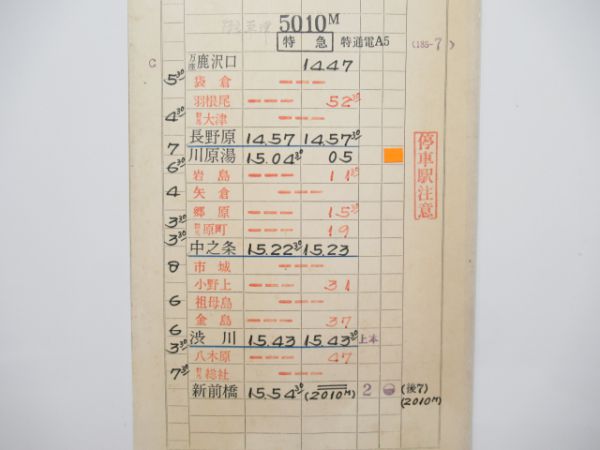 5010M
特急 特通電A5 (185-7)
C 万座 鹿沢口 14.47
5 30
袋倉
羽根尾 52 30
4 30
群馬 大津
7 長野原 14.57 14.57 30
川原湯 15.04 30 05
6 30
岩島 11 30
4 矢倉
郷原 15 30
3 30
群馬 原町 19
3 30
中之条 15.22 30 15.23
8 市城
小野上 31
6 祖母島
金島 37
6
渋川 15.43 15.43 30 上本
3 30
八木原 47
群馬 総社
7 30
新前橋 15.54 30 (2010M) 2 (後7)
(2010M)
停車駅注意